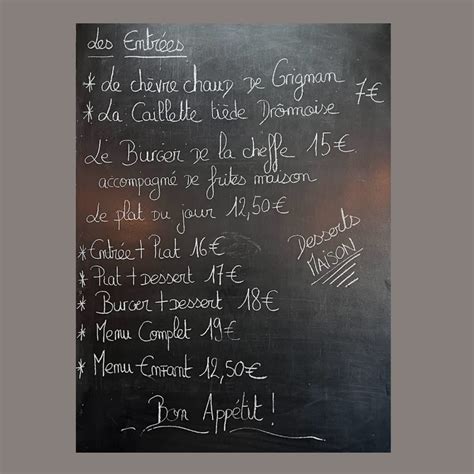 Les Entrées
* Le chèvre chaud de Grignan
* La Caillette tiède Drômoise 7€
Le Burger de la cheffe 15€
accompagné de frites maison
Le plat du jour 12,50€
* Entrée + Plat 16€
* Plat + Dessert 17€
* Burger + Dessert 18€
* Menu Complet 19€
* Menu Enfant 12,50€
Desserts
MAISON
Bon Appétit !